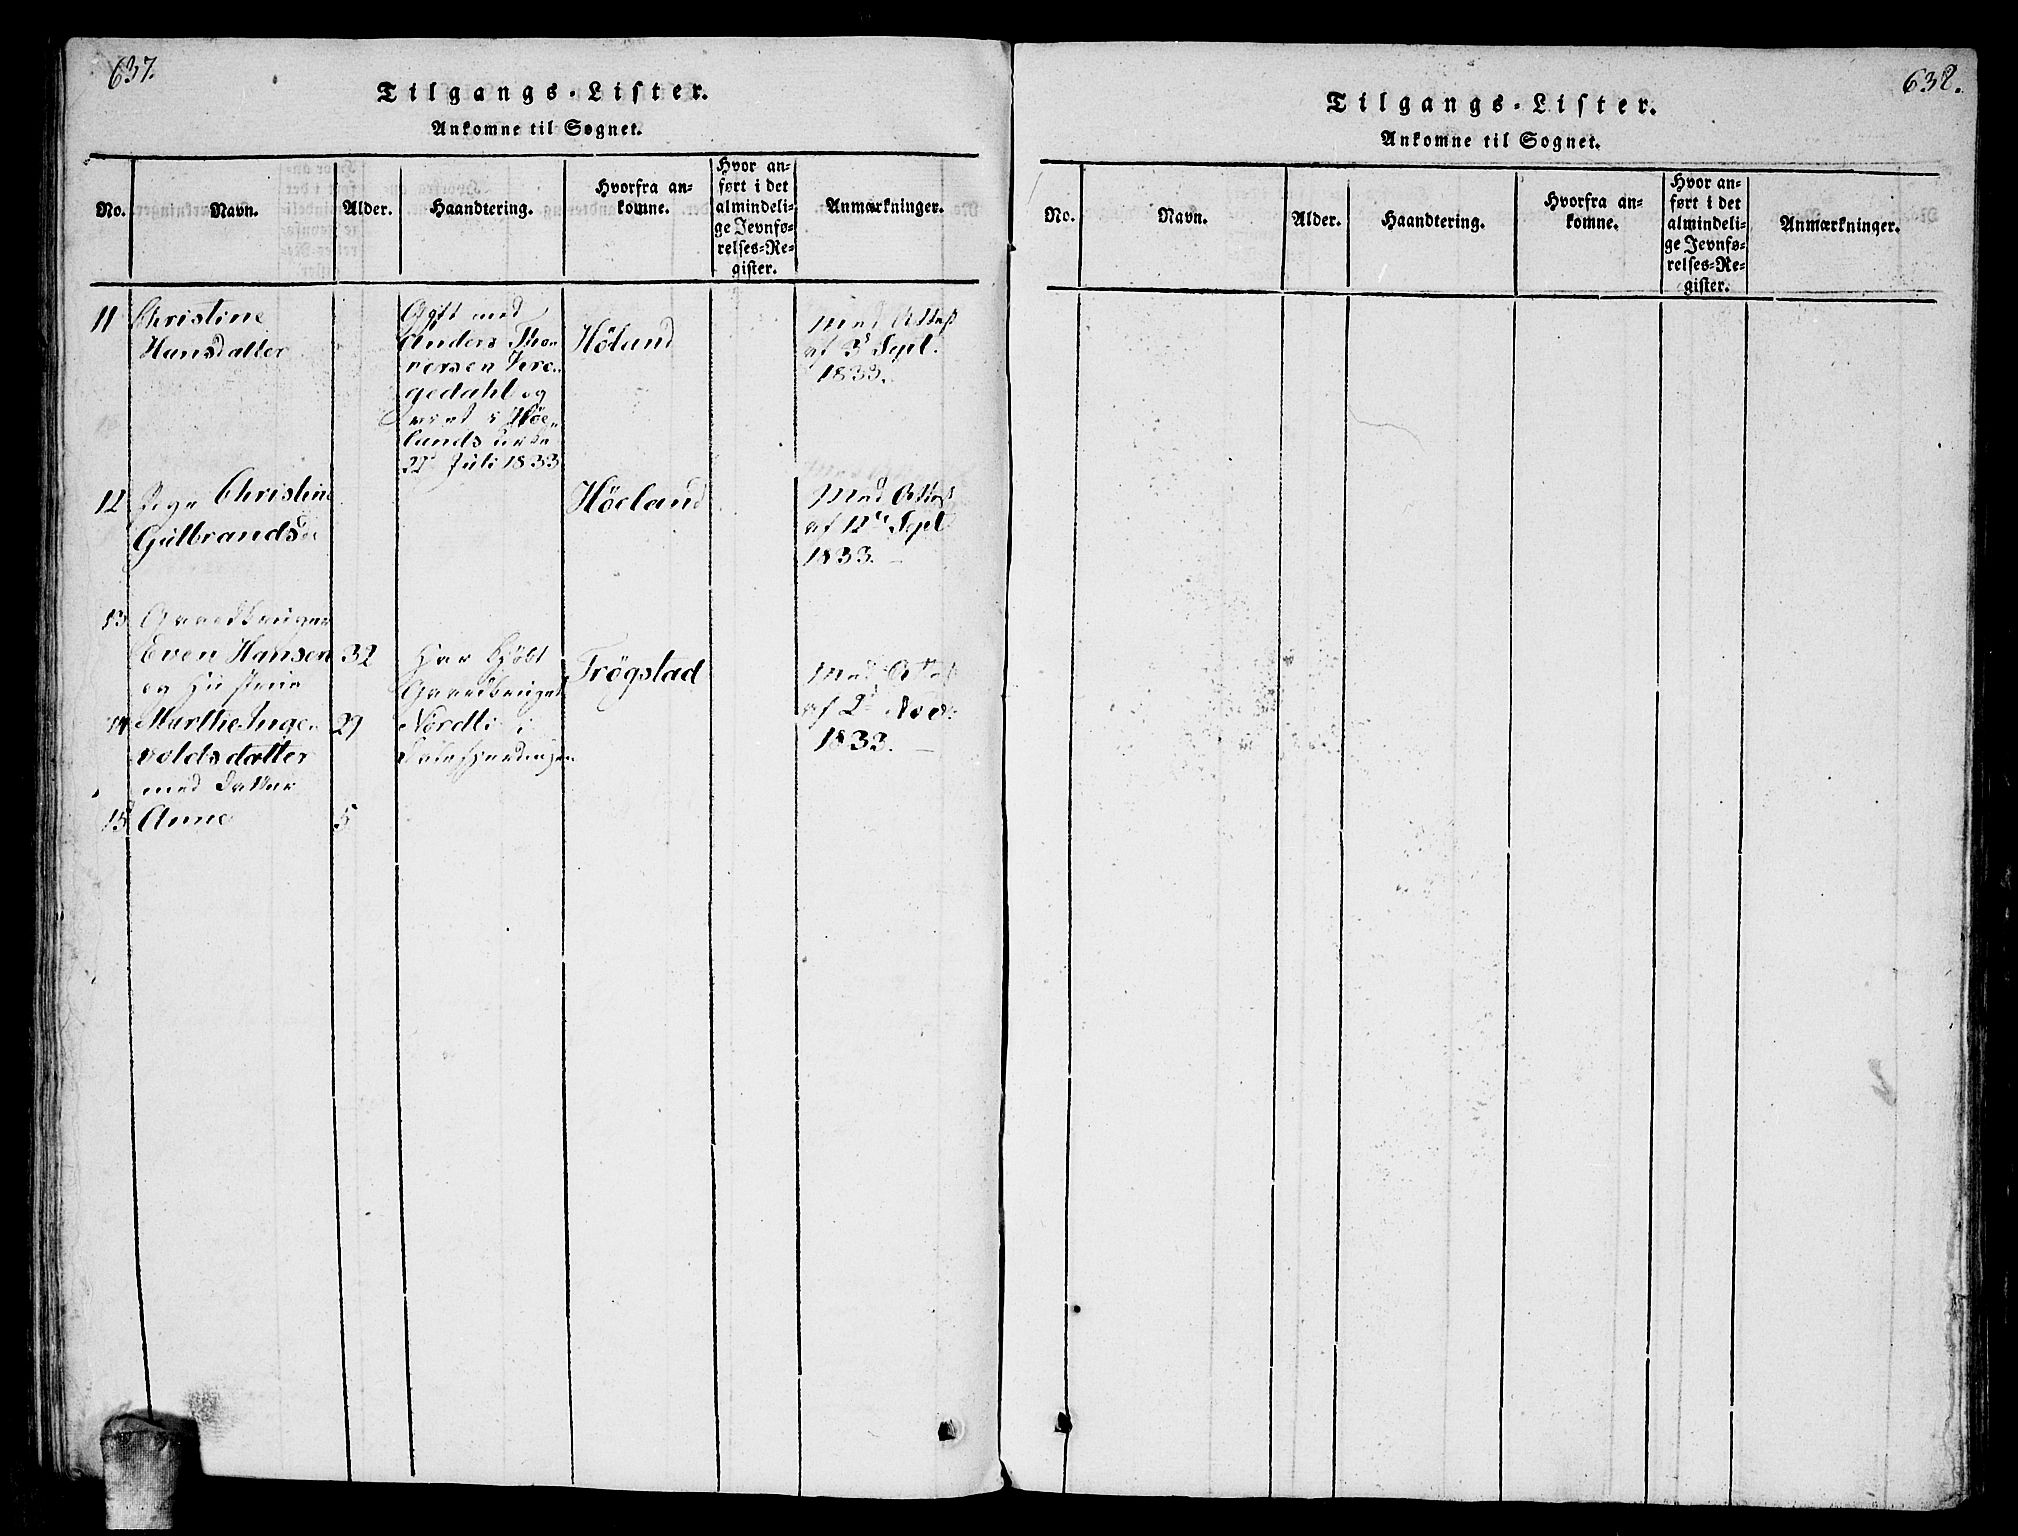 637.
Tilgangs-Lister.
Ankomne til Sognet.
No. Navn. Alder. Haandtering. Hvorfra an=
komne. Hvor an=
ført i det
almindeli=
ge Jevnfø=
relses=Re=
gister. Anmærkninger.
11 Christine
Hansdatter
Gift med
Anders Tho=
rersen
gedahl og
i Høe=
lands
22d Juli 1833
Høland
med Attest
af 3d Sept.
1833.
12 Pige Christine
Gulbrandsd
Høeland
Med Attest
af 12te Sept
1833.
13 Gaardbruger
Even Hansen 32
og Hustrue
14 Marthe Inge= 29
voldsdatter
med Datter
15 Anne 5
Har kjøbt
Gaardbruget
Nordli i
Trögstad
Med Attest
af 2d Nov.
1833.
638.
Tilgangs-Lister.
Ankomne til Sognet.
No. Navn. Alder. Haandtering. Hvorfra an=
komne. Hvor an=
ført i det
almindeli=
ge Jevnfø=
relses=Re=
gister. Anmærkninger.